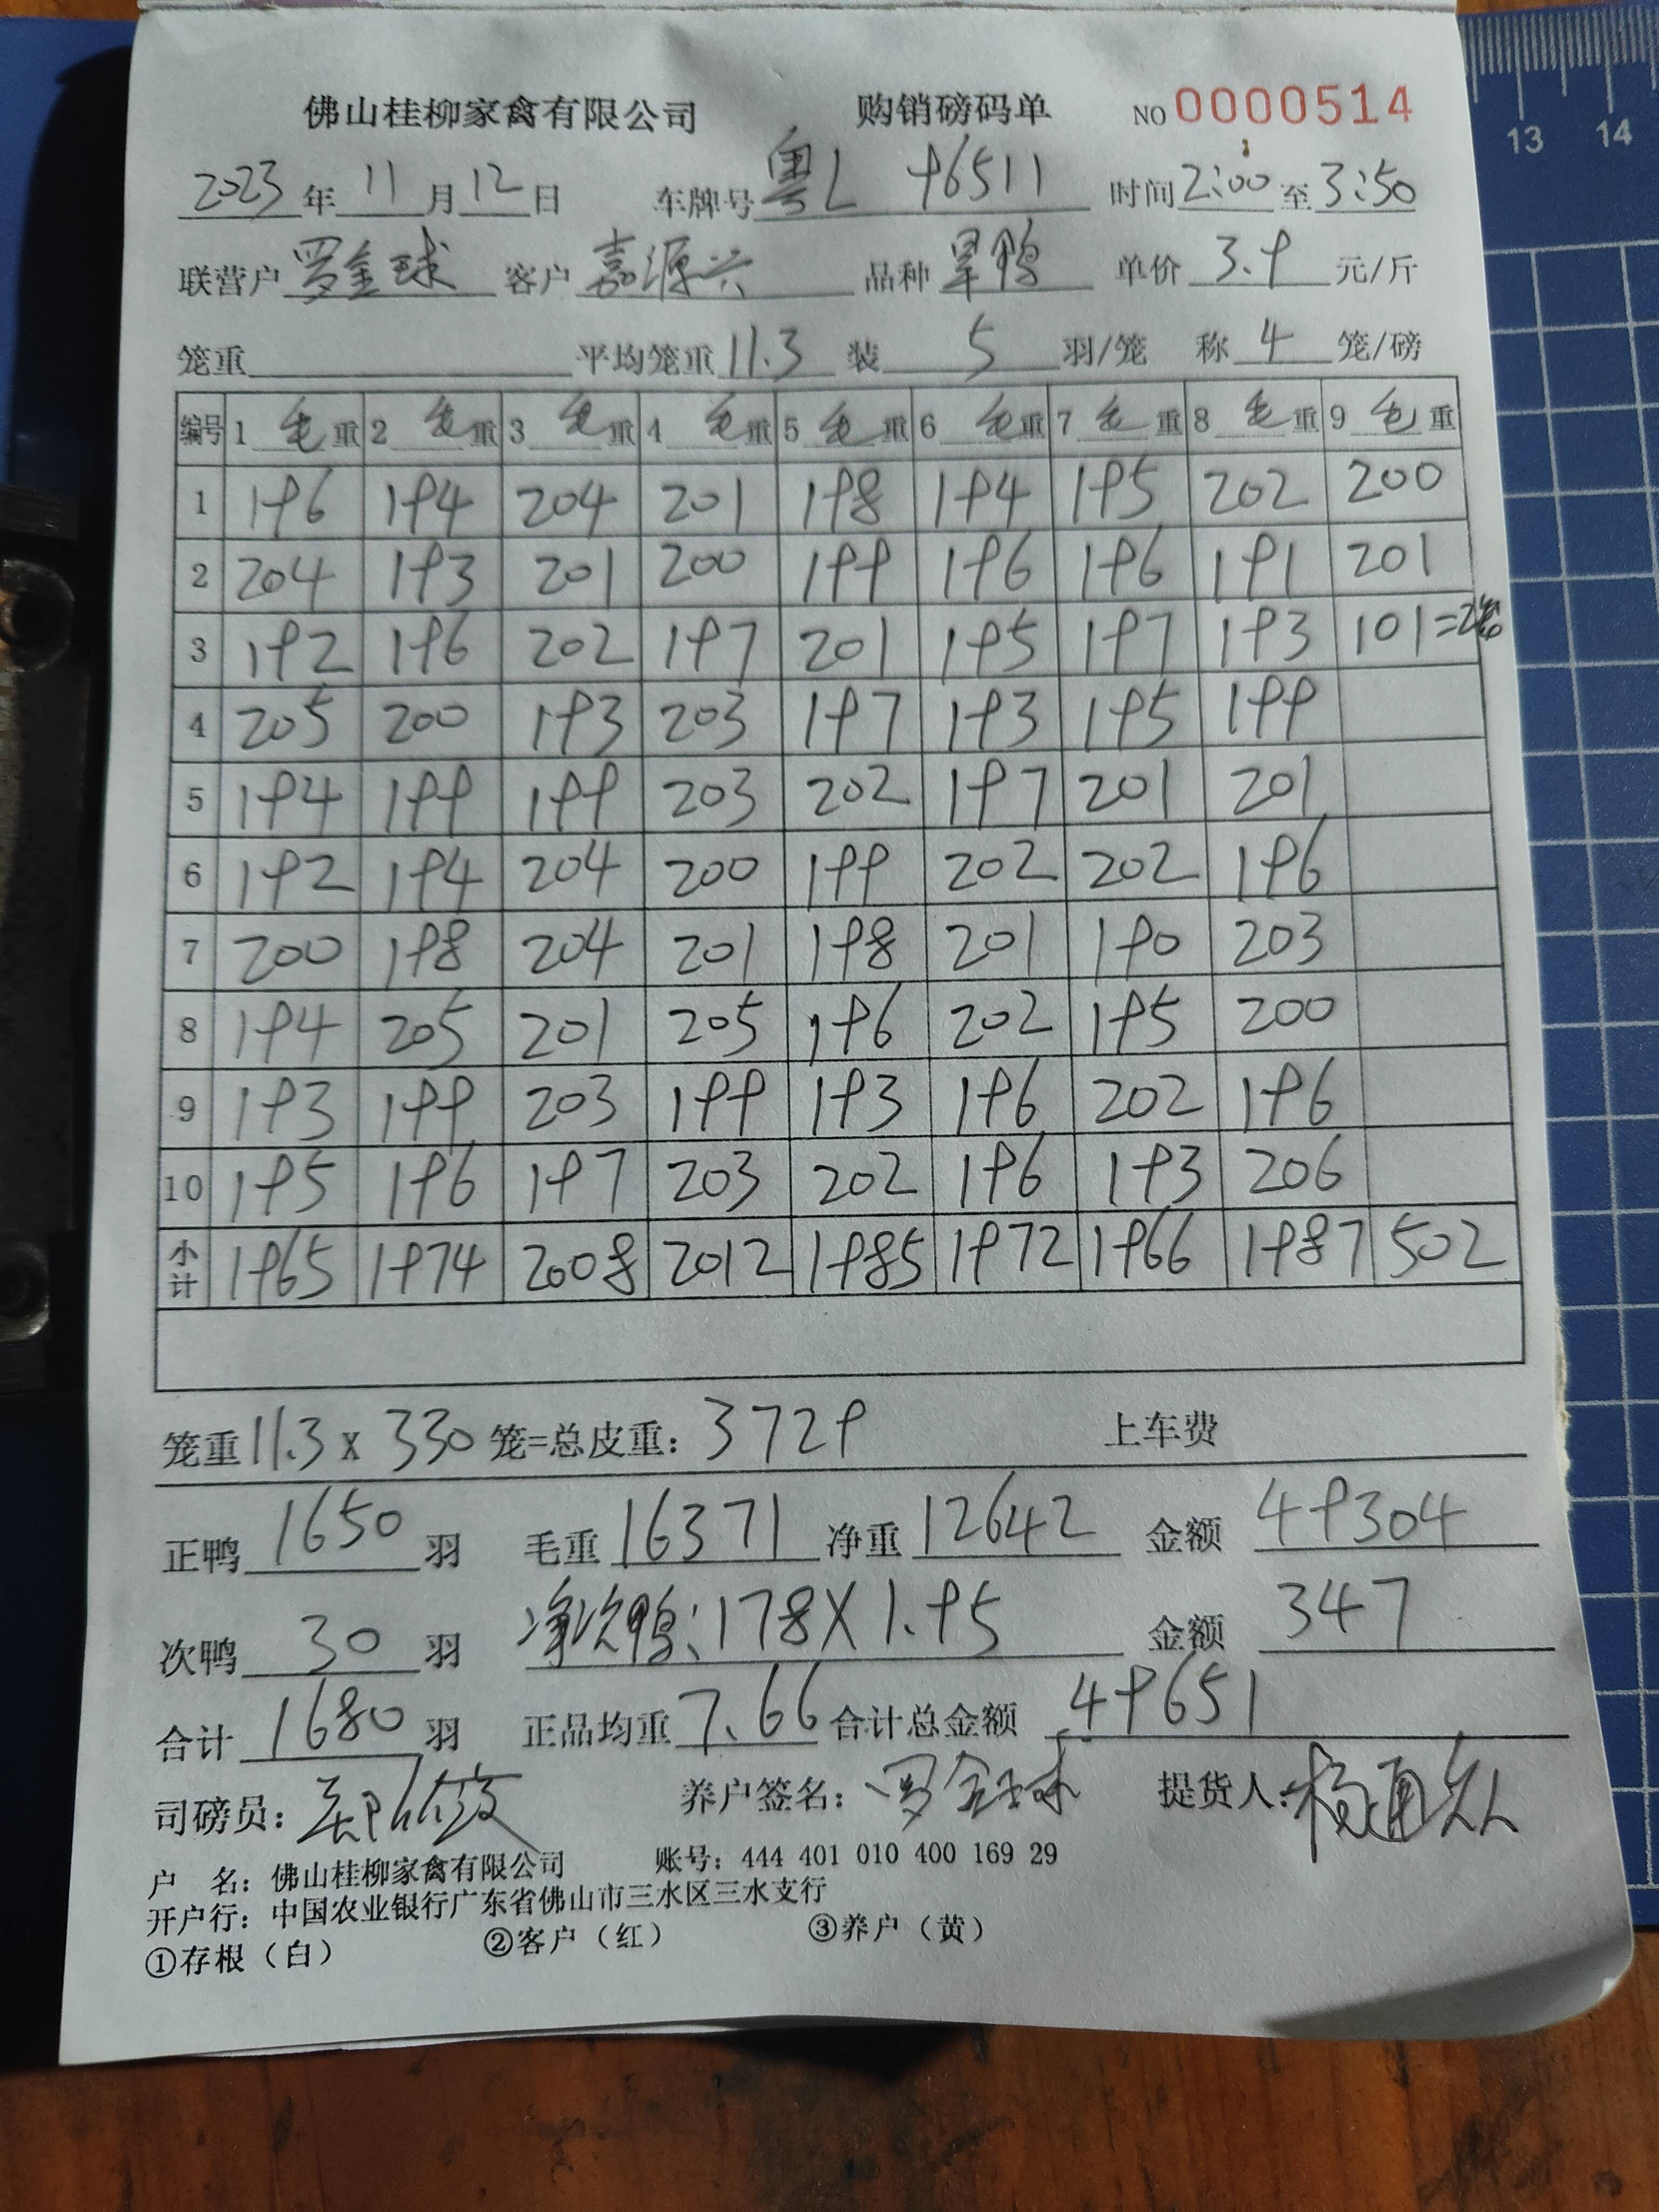 佛山桂柳家禽有限公司 购销磅码单 NO 0000514
2023年11月12日 车牌号 粤L 96511 时间 2:00 至 3:50
联营户 罗金球 客户 嘉源兴 品种 旱鸭 单价 3.9 元/斤
笼重 平均笼重 11.3 装 5 羽/笼 称 4 笼/磅
编号 1 毛重 2 毛重 3 毛重 4 毛重 5 毛重 6 毛重 7 毛重 8 毛重 9 毛重
1 196 194 204 201 198 194 195 202 200
2 204 193 201 200 199 196 196 191 201
3 192 196 202 197 201 195 197 193 101=2笼
4 205 200 193 203 197 193 195 199
5 194 199 199 203 202 197 201 201
6 192 194 204 200 199 202 202 196
7 200 198 204 201 198 201 190 203
8 194 205 201 205 196 202 195 200
9 193 199 203 199 193 196 202 196
10 195 196 197 203 202 196 193 206
小计 1965 1974 2008 2012 1985 1972 1966 1987 502
笼重 11.3 x 330 笼=总皮重: 3729 上车费
正鸭 1650 羽 毛重 16371 净重 12642 金额 49304
次鸭 30 羽 净次鸭: 178X1.95 金额 347
合计 1680 羽 正品均重 7.66 合计总金额 49651
司磅员: 养户签名: 罗金球 提货人:
户 名: 佛山桂柳家禽有限公司 账号: 444 401 010 400 169 29
开户行: 中国农业银行广东省佛山市三水区三水支行
①存根（白） ②客户（红） ③养户（黄）
13 14